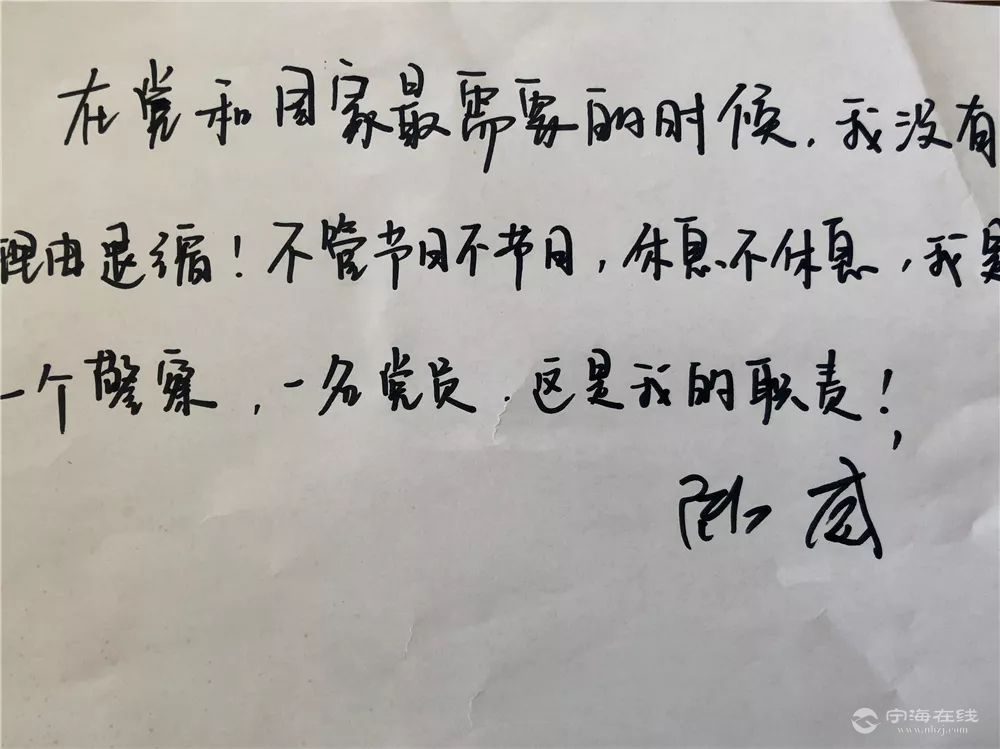 在党和国家最需要的时候，我没有
理由退缩！不管节日不节日，休息不休息，我是
一个警察，一名党员，这是我的职责！
威
宁海在线
www.nhzj.com